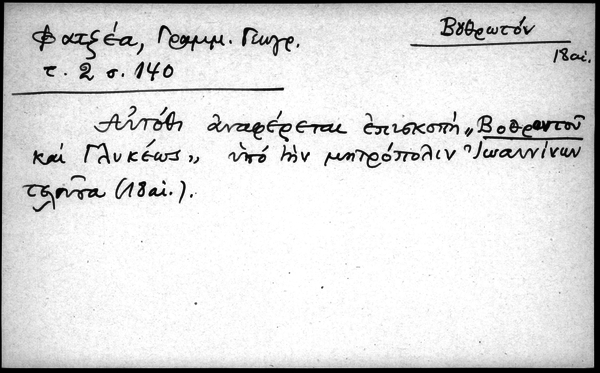 Φατζέα, Γραμμ. Γεωγρ.
τ. 2 σ. 140
Βοθρωτόν
18 αἰ.
Αὐτόθι ἀναφέρεται ἐπισκοπή „Βοθροντοῦ
καί Γλυκέως„ ὑπό τήν μητρόπολιν Ἰωαννίνων
τελοῦσα (18 αἰ.).